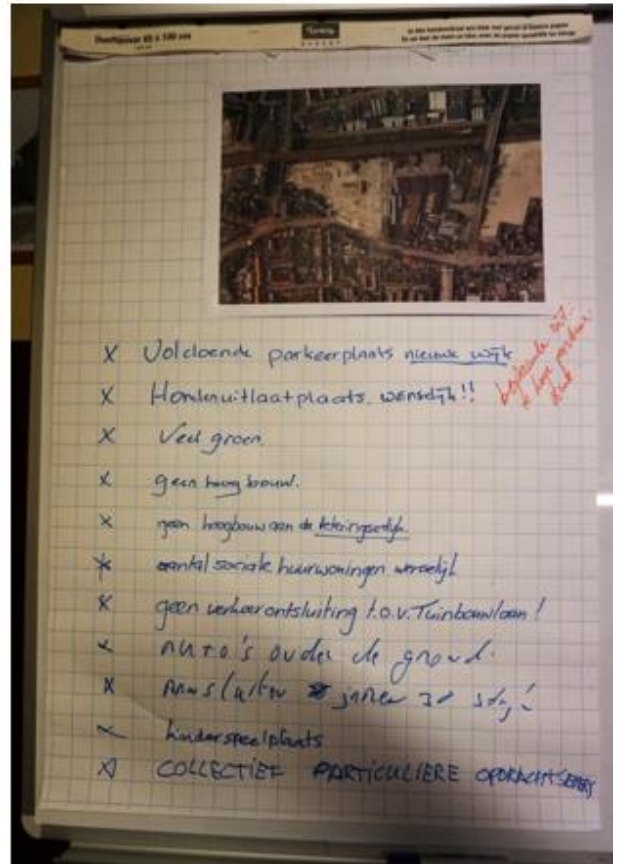 X Voldoende parkeerplaats nieuwe wijk
X Hondenuitlaatplaats wenselijk!!
X Veel groen.
X geen hoog bouw.
X geen hoogbouw aan de
X aantal sociale huurwoningen wenselijk
X geen verkeerontsluiting t.o.v. Tuinbouwlaan!
X auto's onder de grond.
X Aansluiten jaren 30 stijl
X kinderspeelplaats
X COLLECTIEF PARTICULIERE